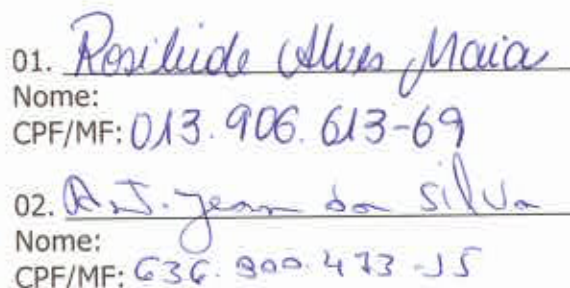 01. Rosileide Alves Maia
Nome:
CPF/MF: 013.906.613-69
02. Ant. Jean da Silva
Nome:
CPF/MF: 636.900.473-15